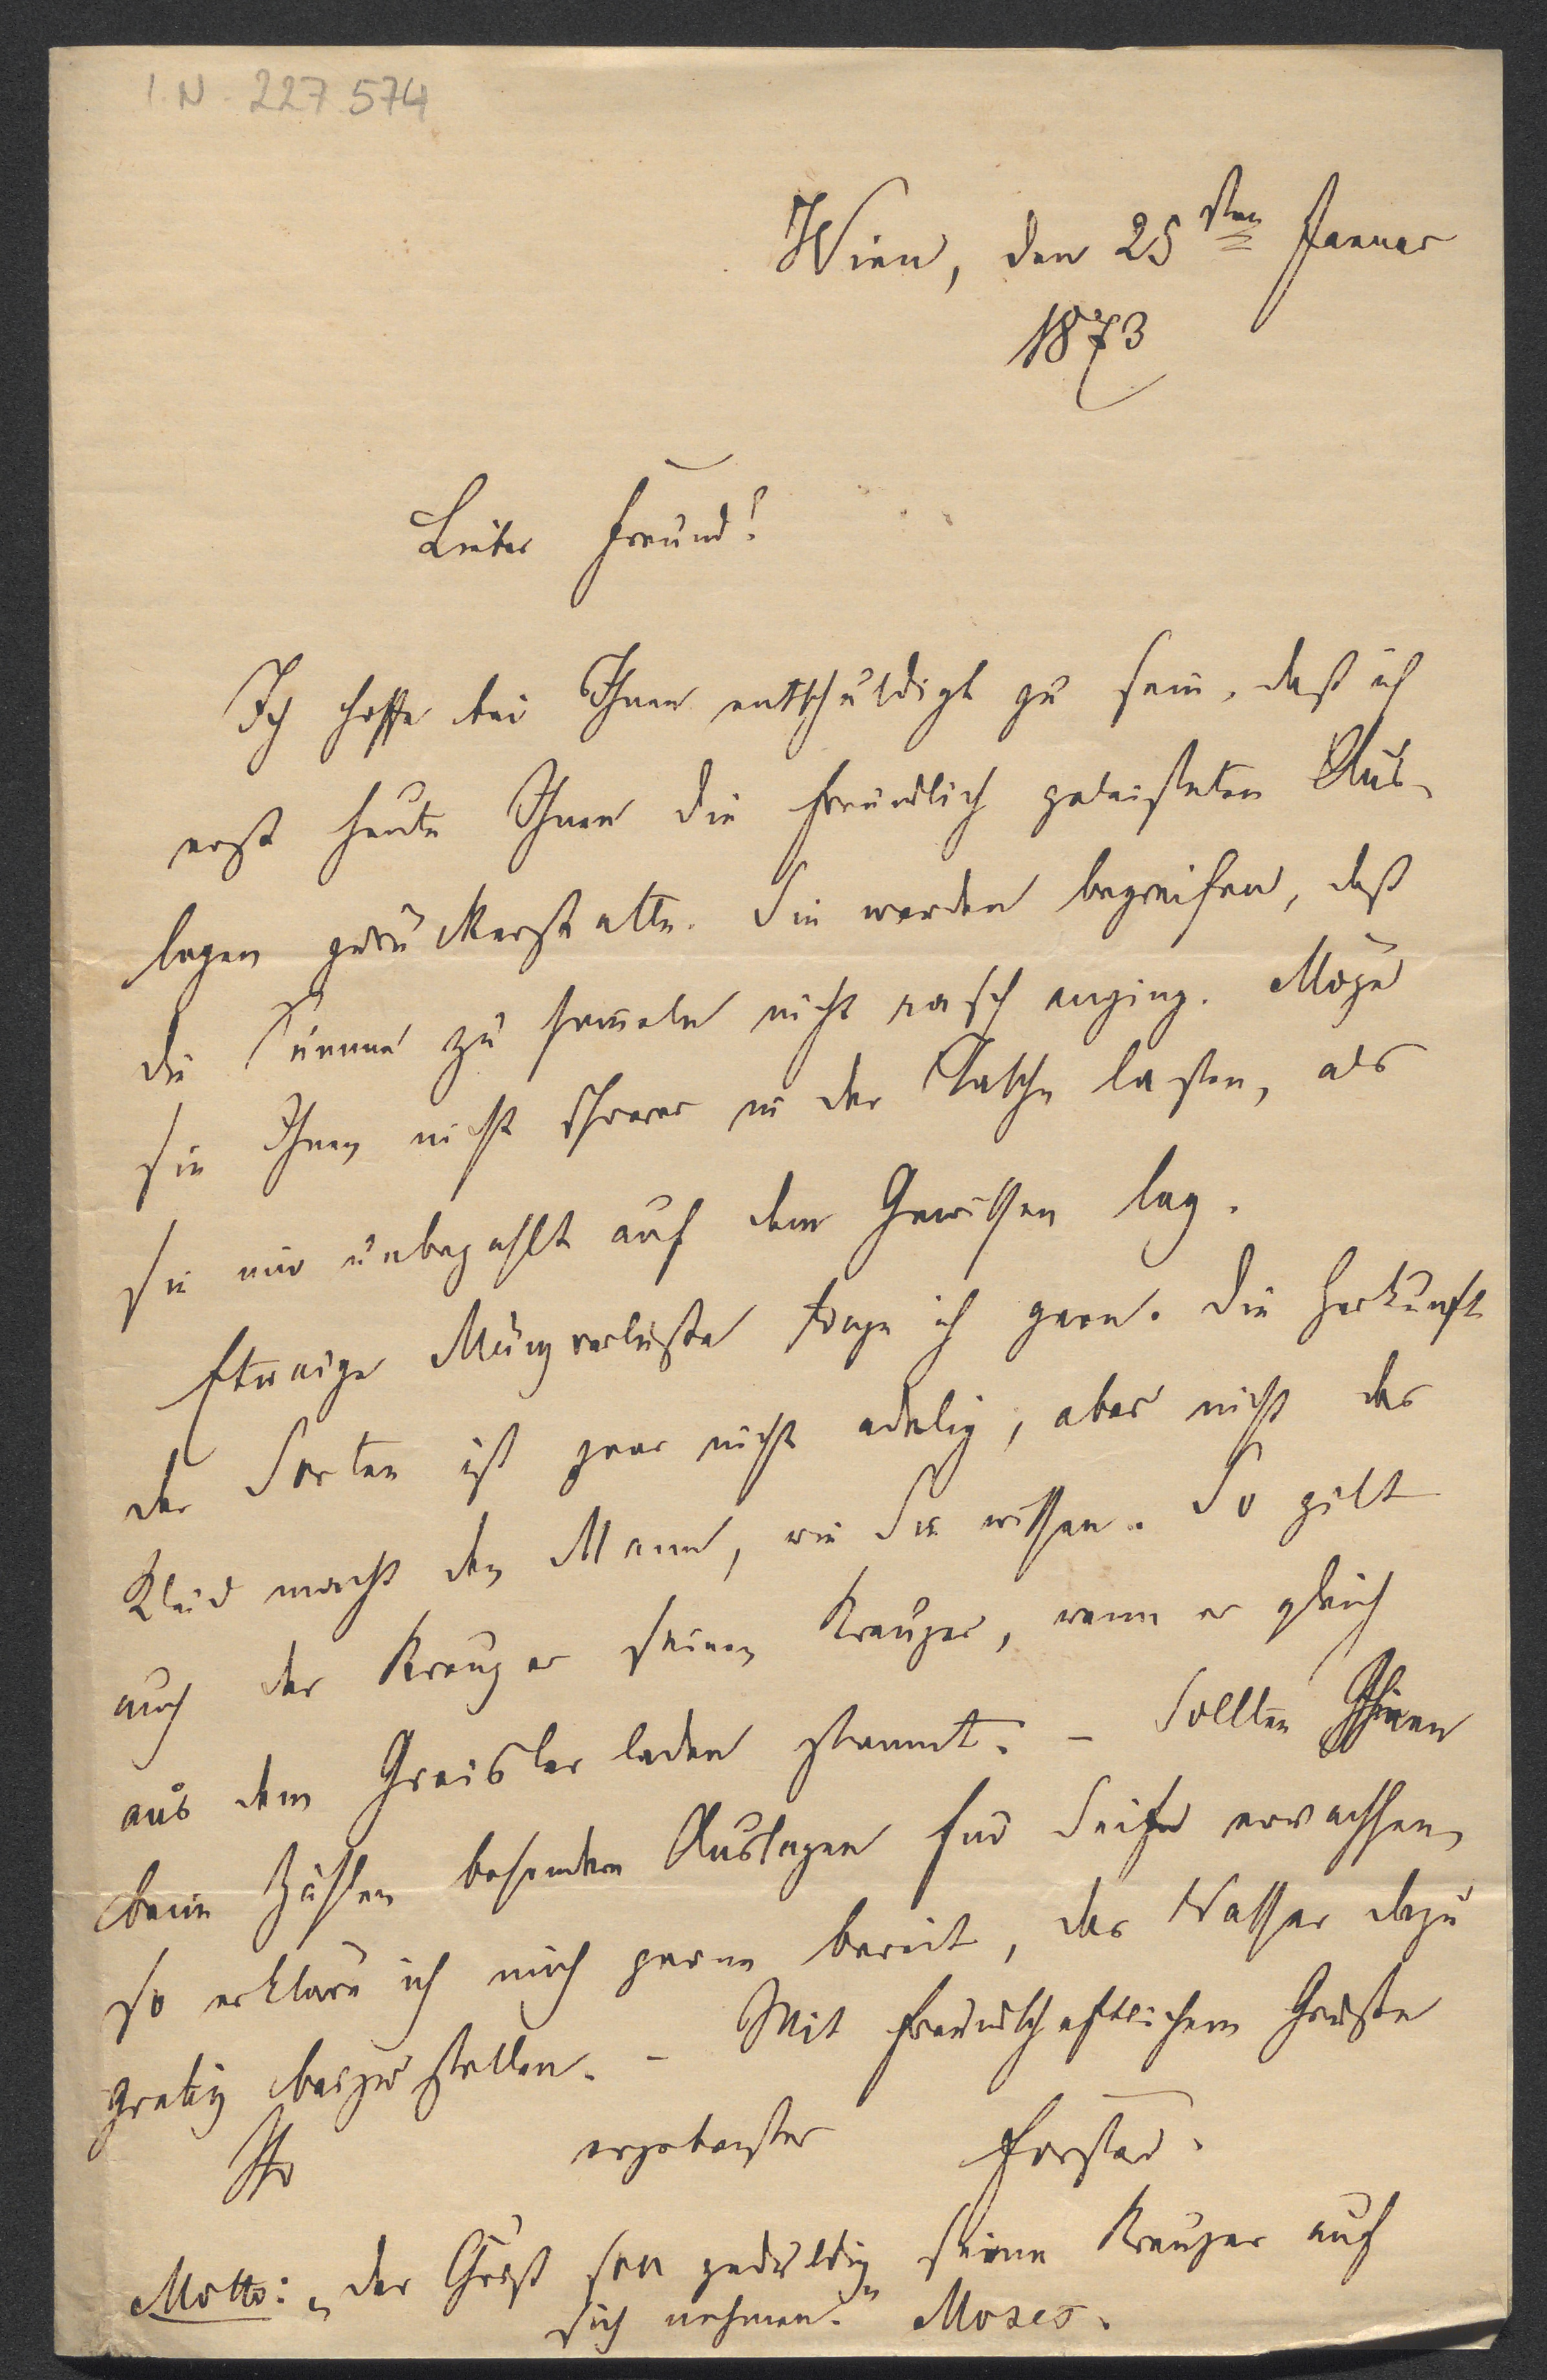 I.N. 227.574
Wien, den 25sten Januar
1873
Lieber Freund!
Ich hoffe bei Ihnen entschuldigt zu sein, daß ich
erst heute Ihnen die freundlich geleisteten Aus-
lagen zurückerstatte. Sie werden begreifen, daß
die Summe zu sammeln nicht rasch anging. Möge
sie Ihnen nicht schwerer in der Tasche lasten, als
sie mir unbezahlt auf dem Gewissen lag.
Etwaige Münzverluste trage ich gern. Die Herkunft
der Sorten ist zwar nicht adelig, aber nicht das
Kleid macht den Mann, wie Sie wissen. So gilt
auch der Kreuzer seinen Kreuzer, wenn er gleich
aus dem Greislerladen stammt. – Sollten Ihnen
beim Zählen besondere Auslagen für Seife erwachsen,
so erkläre ich mich gerne bereit, das Wasser dazu
gratis beizustellen. – Mit freundschaftlichem Gruße
Ihr ergebenster Förster.
Motto: „Der Christ soll geduldig seine Kreuzer auf
sich nehmen." Moses.